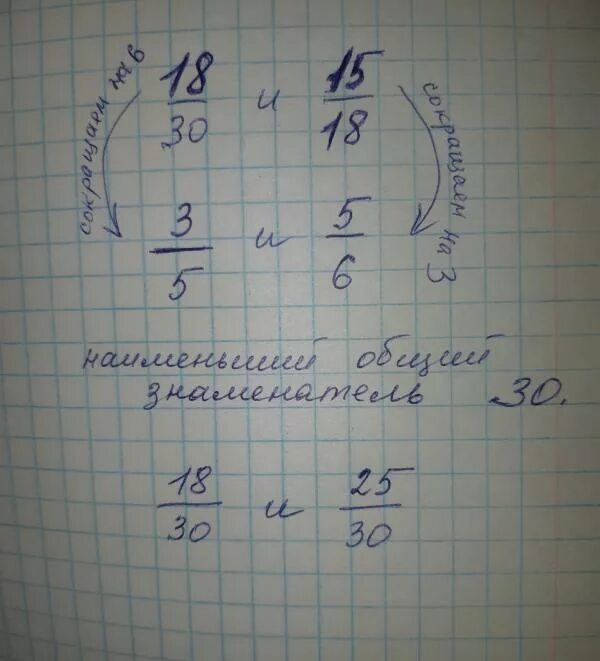 сокращаем на 6
18/30 и 15/18
сокращаем на 3
3/5 и 5/6
наименьший общий
знаменатель 30.
18/30 и 25/30